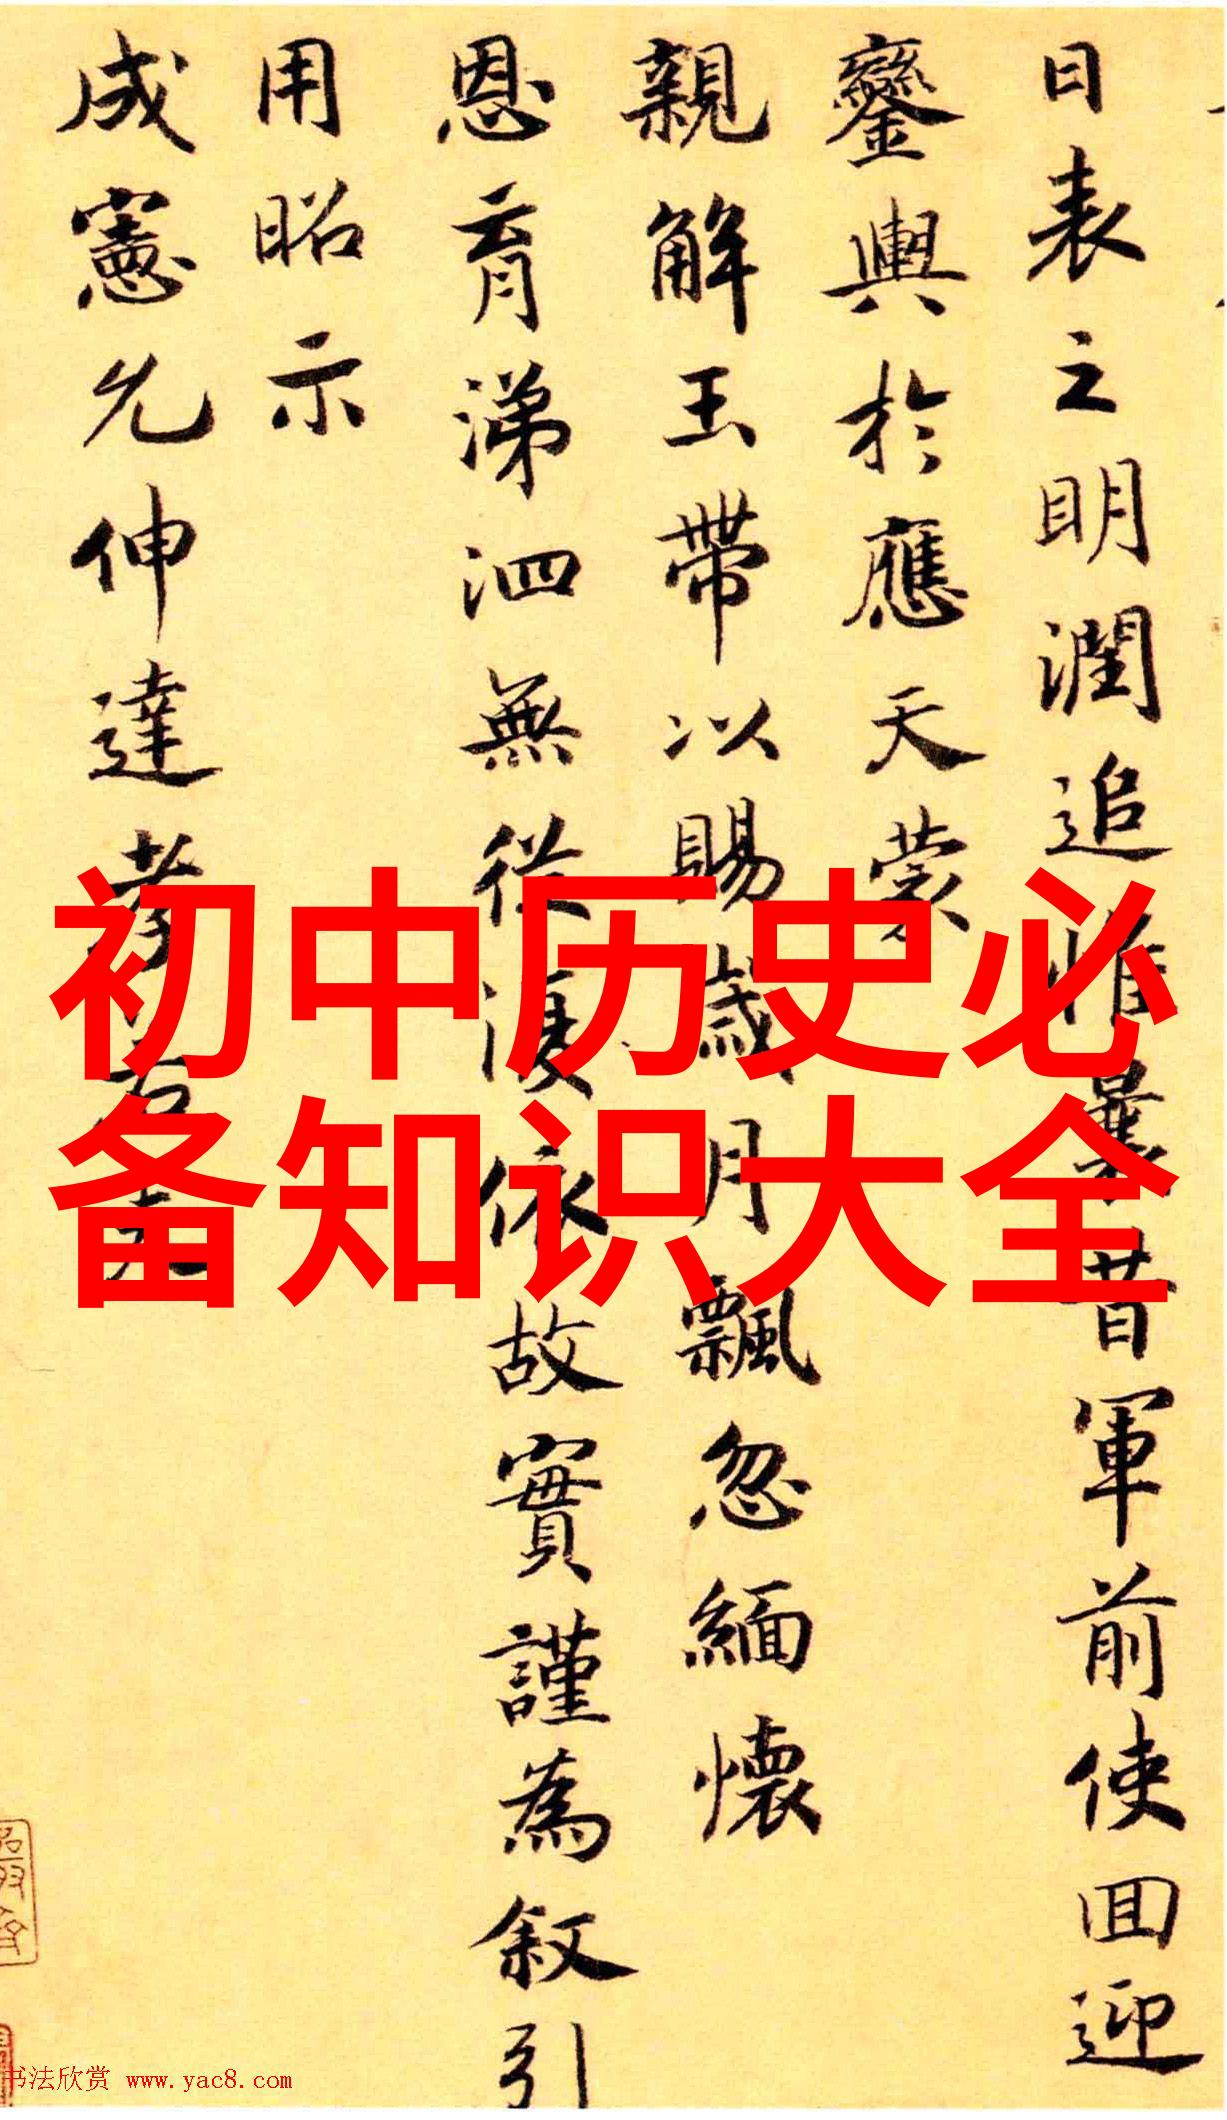 日表之明潤追惟曩昔軍前使回迎
鑾輿於應天蒙
親解玉帶以賜歲月飄忽緬懷
恩育涕泗無從湏依故實謹為叙引
用昭示
成憲允伸達孝若夫
初中历史必
备知识大全
书法欣赏 www.yac8.com